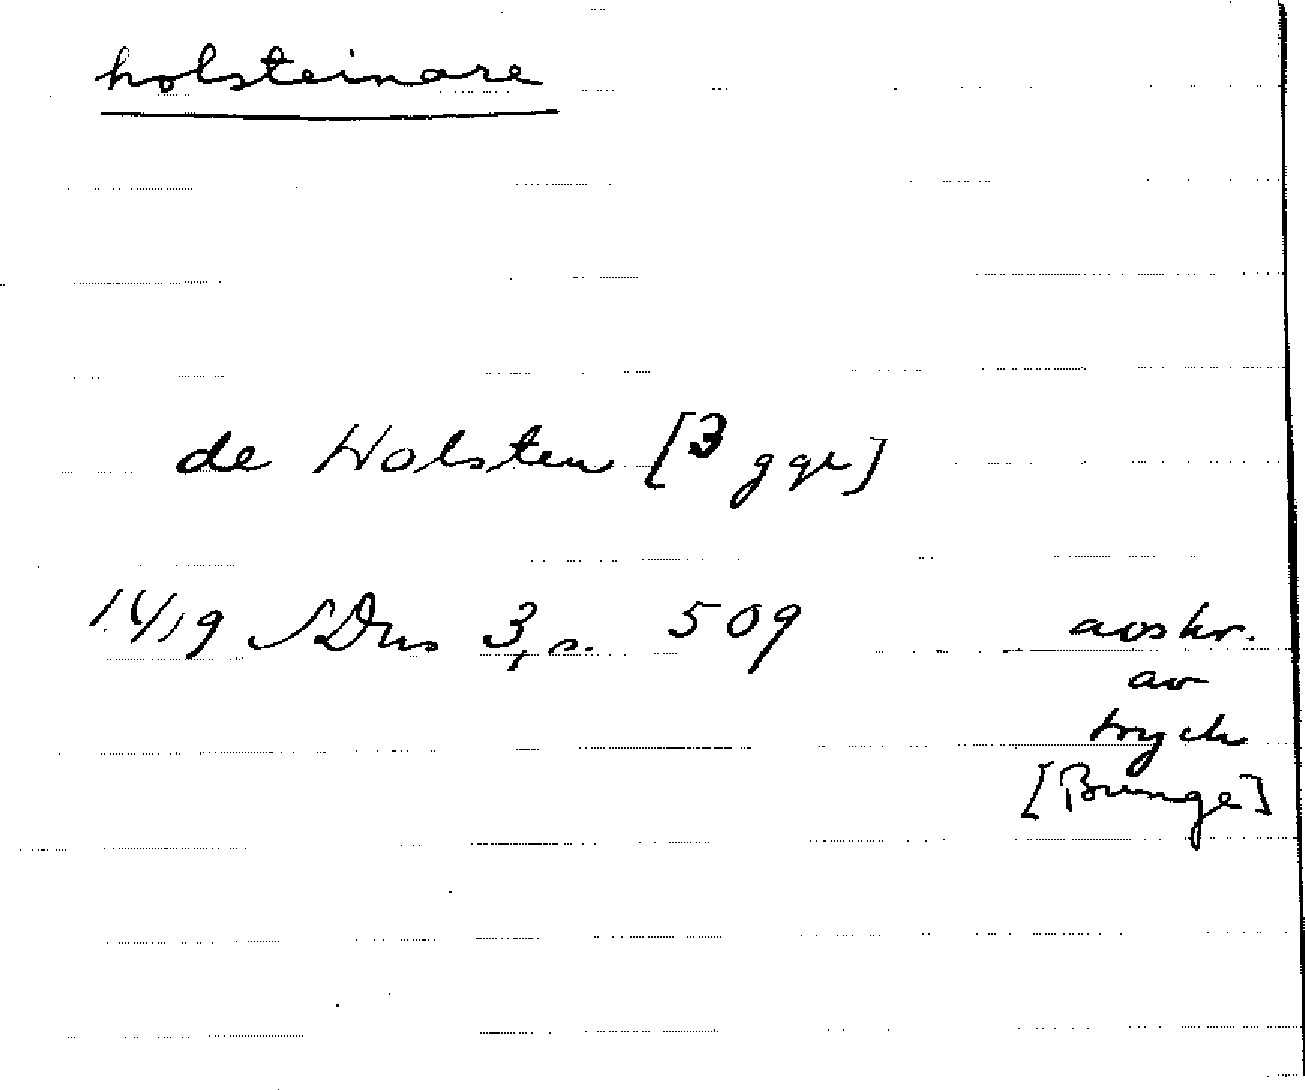 holsteinare
de Holsten [3 ggr]
1419 SDns 3, s. 509
avskr.
av
tryck
[Bunge]